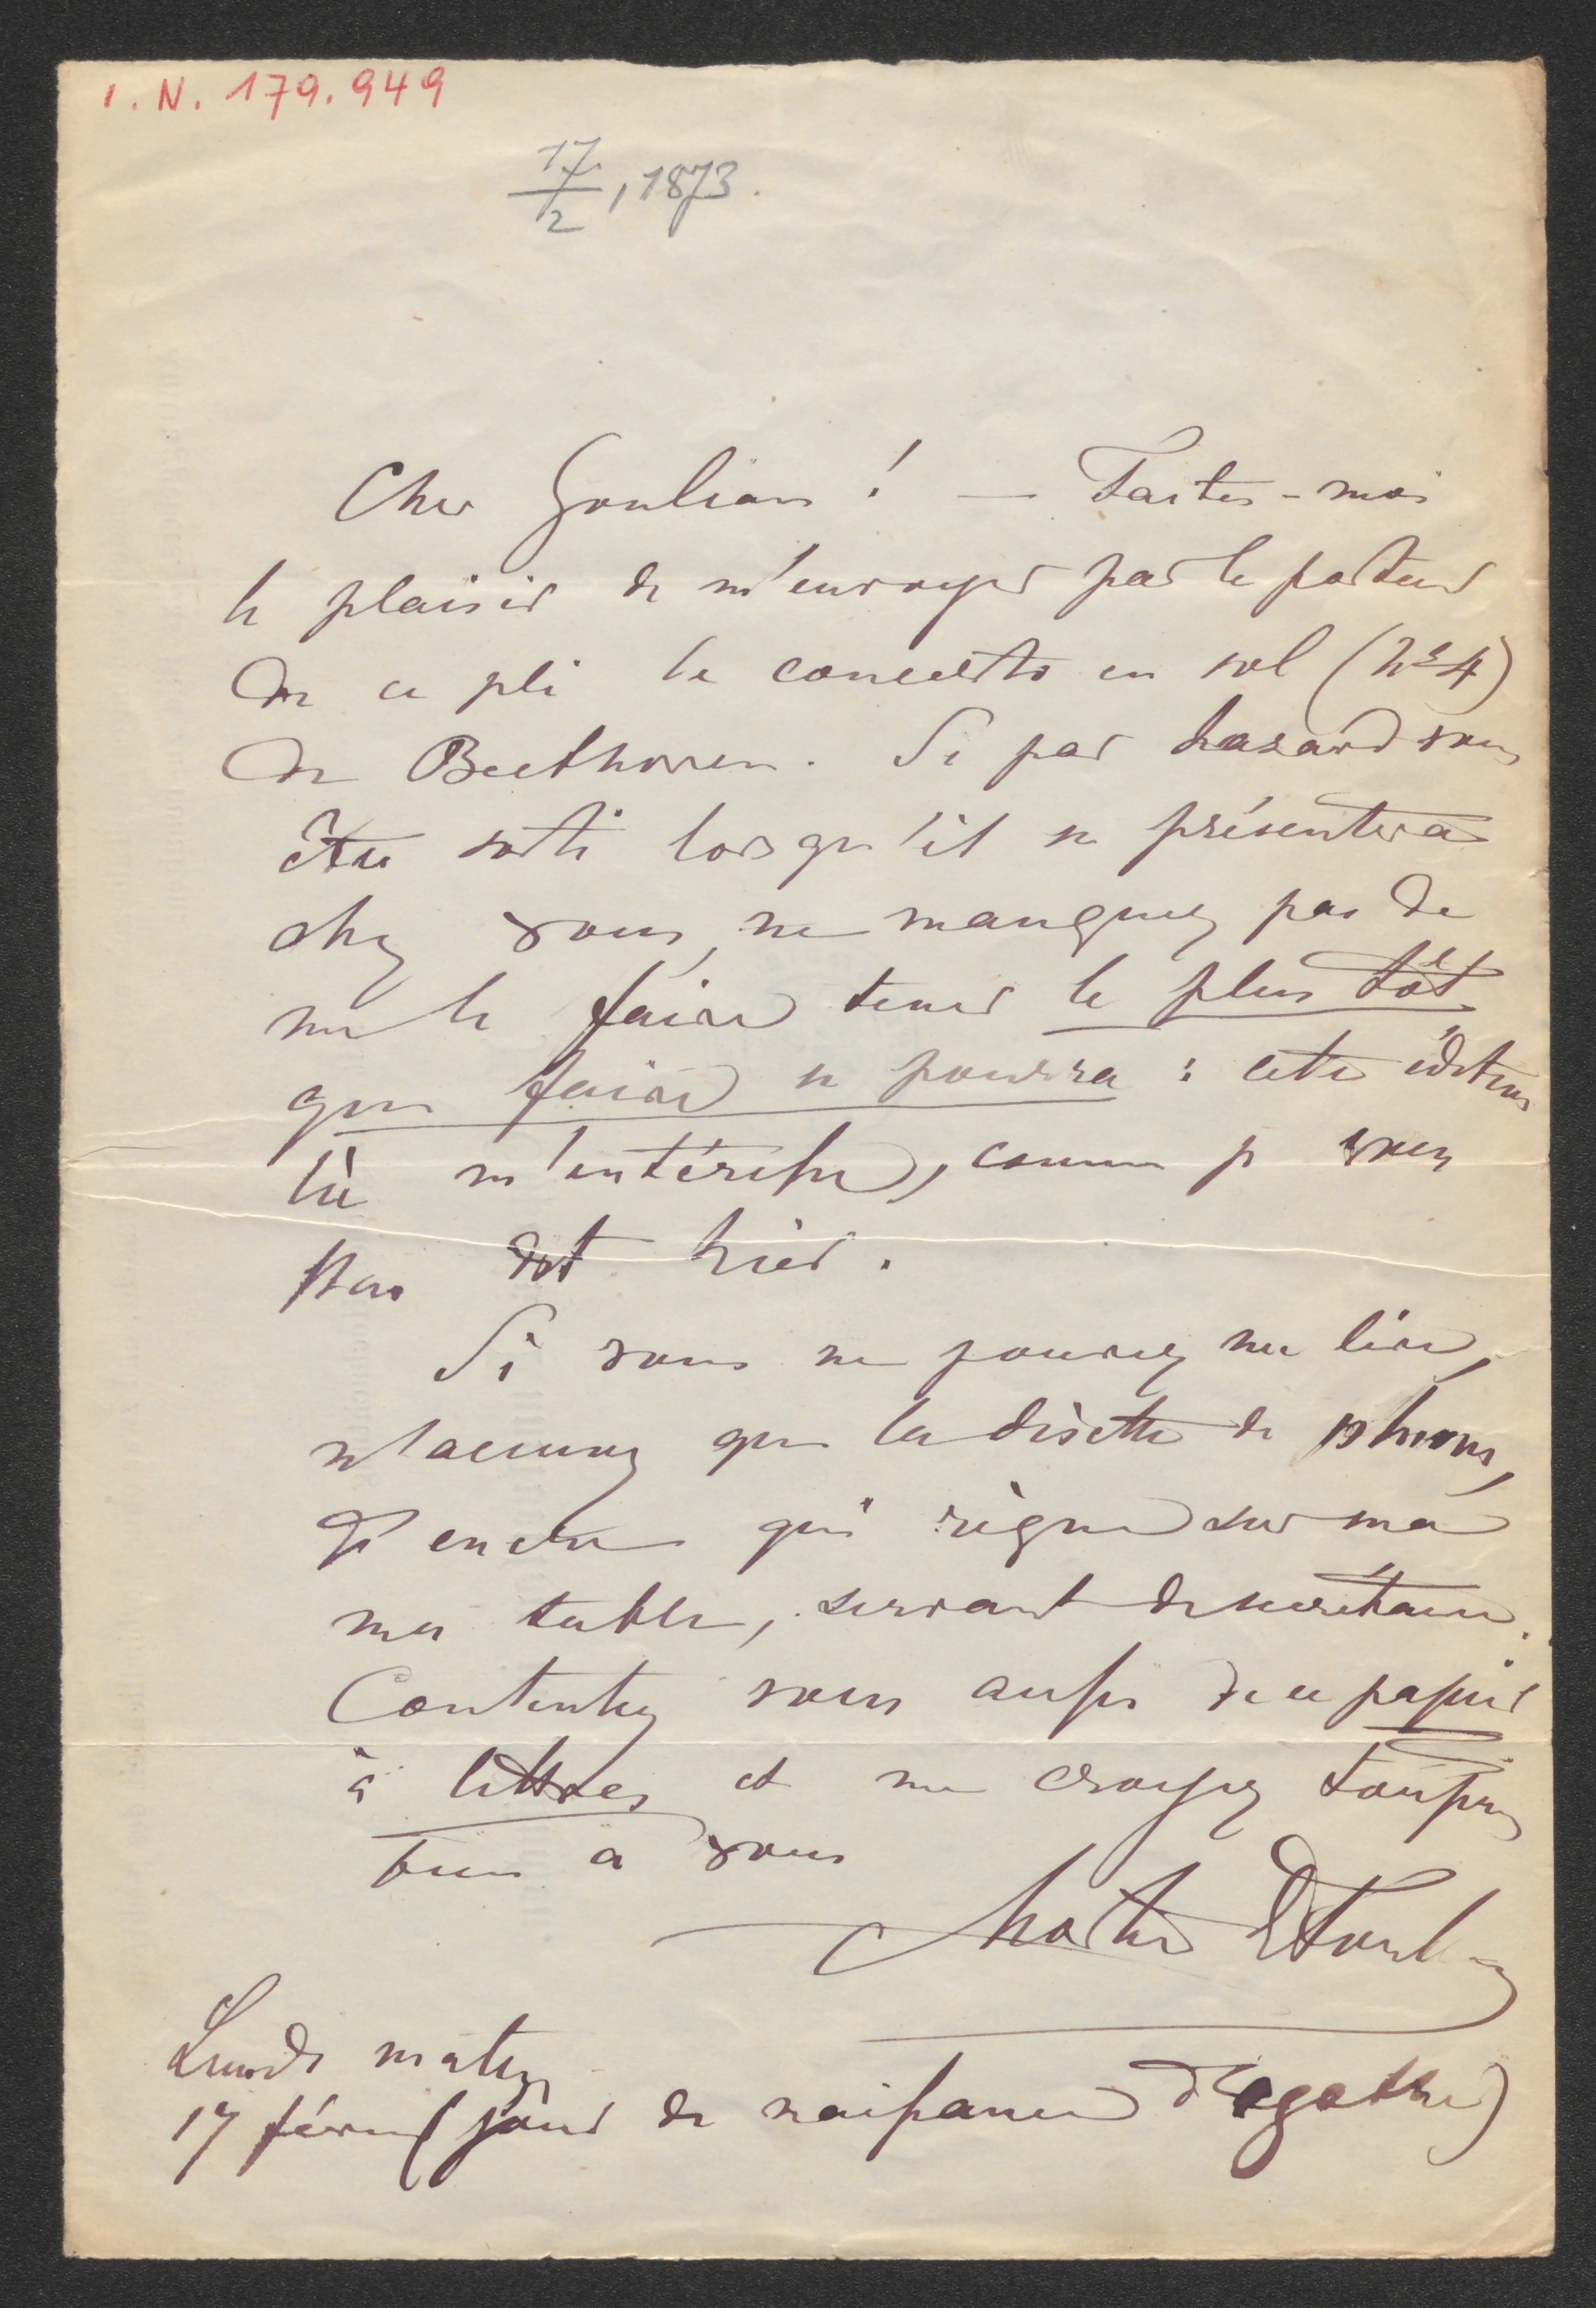 I. N. 179.949
17/2, 1873.
Cher Goulian ! — Faites-moi
le plaisir de m'envoyer par le porteur
de ce pli le concerto en sol (No 4)
de Beethoven. Si par hasard vous
étiez sorti lorsqu'il se présentera
chez vous, ne manquez pas de
me le faire tenir le plus tôt
que faire se pourra : cette édition
là m'intéresse, comme je vous
l'ai dit hier.
Si vous ne pouvez me lire,
n'accusez que la disette de plumes,
d'encre qui règne sur ma
ma table, servant de secrétaire.
Contentez vous aussi de ce papier
à lettres et me croyez toujours
bien à vous
Lundi matin
17 févr. (jour de naissance d'Agathe)